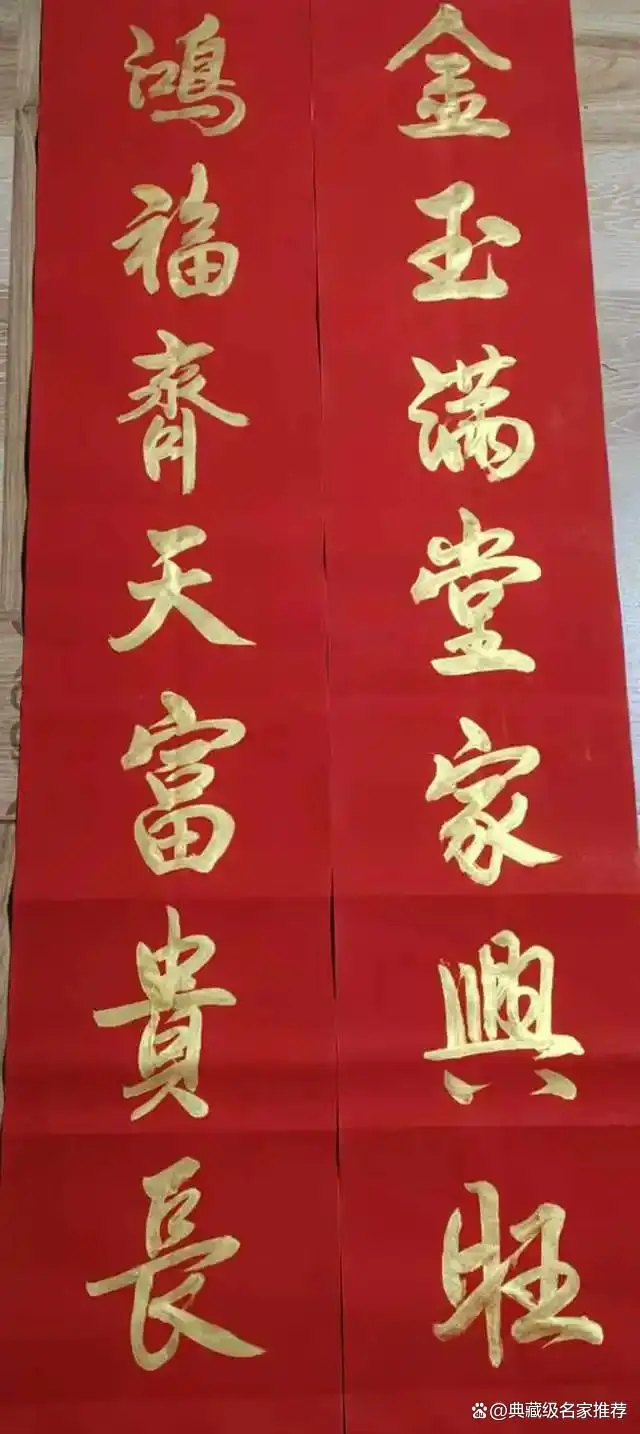 金玉满堂家興旺
鴻福齊天富貴長
@典藏级名家推荐